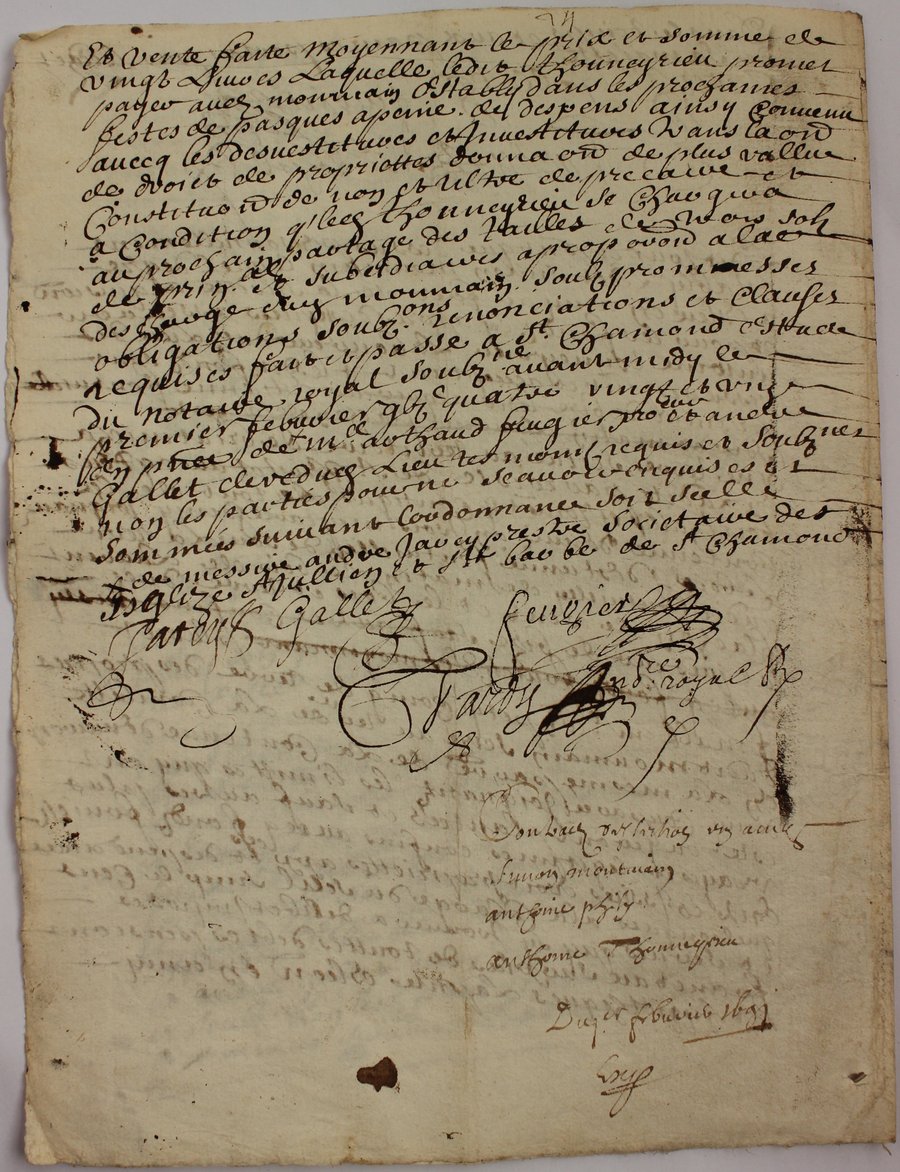 Et vente faite moyennant le prix et somme de
vingt Livres Laquelle ledit thonneyrieu promet
payer aud mourrain Estably dans les prochaines
festes de pasques apeine de despens ainsy Convenu
avecq les desvestitures et Investitures
de droict de proprietté de plus vallue
Constituon de non et Ultre de precaire et
a Condition q led thonneyrieu se Chargera
au prochain partage des tailles de
de prin et subsidiaires a proporond a la
descharge dud mourrain soubz promesses
obligations soubz.ons renonciations et Clauses
requises fait et passé a St. Chamond estude
du notaire royal soubz.ne avant midy le
premier febvrier gbj quatre vingt et unze
en pnce de Me arthaud feugier et andré
Gallet clercs dud Lieu tesmoins requis et soubz.nes
non les parties pour ne scavoir enquis et
sommées suivant Lordonnance soit scellé
de messire andré Javey prestre societaire des
Esglize St Jullien et Ste barbe de St Chamond
Tardy Gallet feugier
Tardy no.re royal
simon mourrain
anthoine phily
anthoine Thonneyrieu
Du p.er febvrier 1691